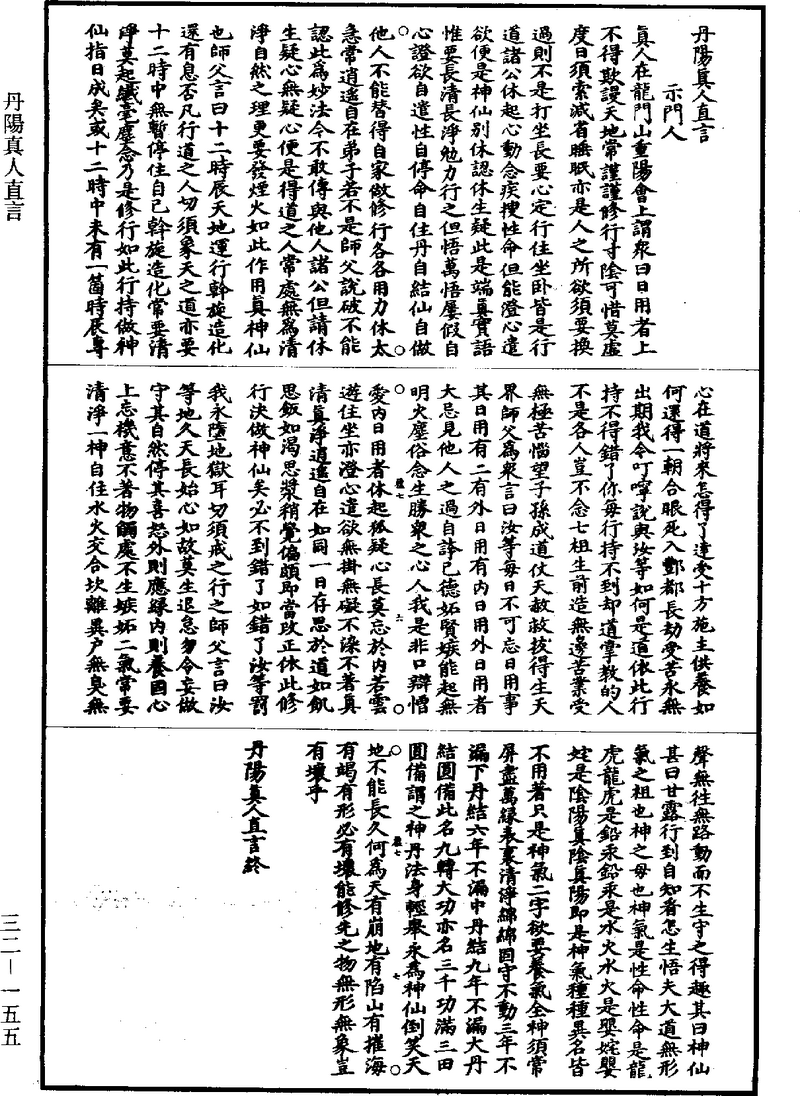 丹陽真人直言
丹陽眞人直言
示門人
眞人在龍門山重陽會上謂衆曰日用者上
不得欺謾天地常謹謹修行寸陰可惜莫虛
度日須索減省睡眠亦是人之所欲須要換
過則不是打坐長要心定行住坐卧皆是行
道諸公休起心動念疾搜性命但能澄心遣
欲便是神仙別休認休生疑此是端眞實語
惟要長清長淨勉力行之但悟萬悟屢假自
心證欲自遣性自停命自住丹自結仙自做
他人不能替得自家做修行各各用力休太
急常逍遙自在弟子若不是師父說破不能
認此爲妙法今不敢傳與他人諸公但請休
生疑心無疑心便是得道之人常處無爲清
淨自然之理更要發煙火如此作用眞神仙
也師父言曰十二時辰天地運行斡旋造化
還有息否凡行道之人切須象天之道亦要
十二時中無暫停住自己斡旋造化常要清
淨莫起纖毫塵念乃是修行如此行持做神
仙指日成矣或十二時中未有一箇時辰專
心在道將來怎得了達受十方施主供養如
何還得一朝合眼死入酆都長劫受苦永無
出期我今叮嚀說與汝等如何是道依此行
持不得錯了你每行持不到却道掌教的人
不是各人豈不念七祖生前造無邊苦業受
無極苦惱望子孫成道仗天赦救拔得生天
界師父爲衆言曰汝等每日不可忘日用事
其日用有二有外日用有内日用外日用者
大忌見他人之過自誇己德妬賢嫉能起無
明火塵俗念生勝衆之心人我是非口辯憎
愛内日用者休起狐疑心長莫忘於内若雲
遊住坐亦澄心遣欲無掛無礙不染不著眞
清眞淨逍遙自在如同一日存思於道如飢
思飯如渴思漿稍覺偏頗即當改正依此修
行決做神仙矣必不到錯了如錯了汝等罰
我永墮地獄耳切須戒之行之師父言曰汝
等地久天長始心如故莫生退怠勿令妄做
守其自然停其喜怒外則應緣内則養固心
上忘機意不著物觸處不生嫉妬二氣常要
清淨一神自住水火交合坎離異户無臭無
聲無徃無路動而不生守之得趣其曰神仙
甚曰甘露行到自知看怎生悟夫大道無形
氣之祖也神之母也神氣是性命性命是龍
虎龍虎是鉛汞鉛汞是水火水火是嬰姹嬰
姹是陰陽眞陰眞陽即是神氣種種異名皆
不用著只是神氣二字欲要養氣全神須常
屏盡萬緣表裏清淨綿綿固守不動三年不
漏下丹結六年不漏中丹結九年不漏大丹
結圓備此名九轉大功亦名三千功滿三田
圓備謂之神丹法身輕舉永爲神仙倒笑天
地不能長久何爲天有崩地有陷山有摧海
有竭有形必有壞能修先之物無形無象豈
有壞乎
丹陽眞人直言終
三二—一五五